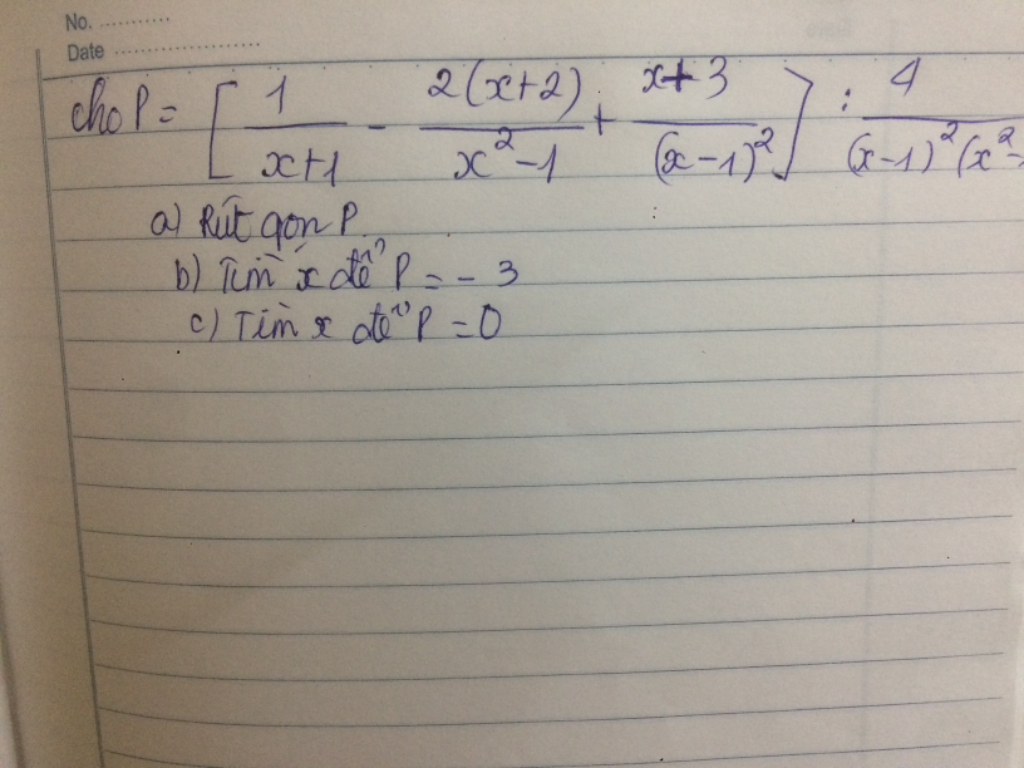 No. ...........
Date .....................
cho P = [ 1/(x+1) - 2(x+2)/(x²-1) + (x+3)/(x-1)² ] : 4/(x-1)²(x²-
a) Rút gọn P.
b) Tìm x để P = - 3
c) Tìm x để P = 0